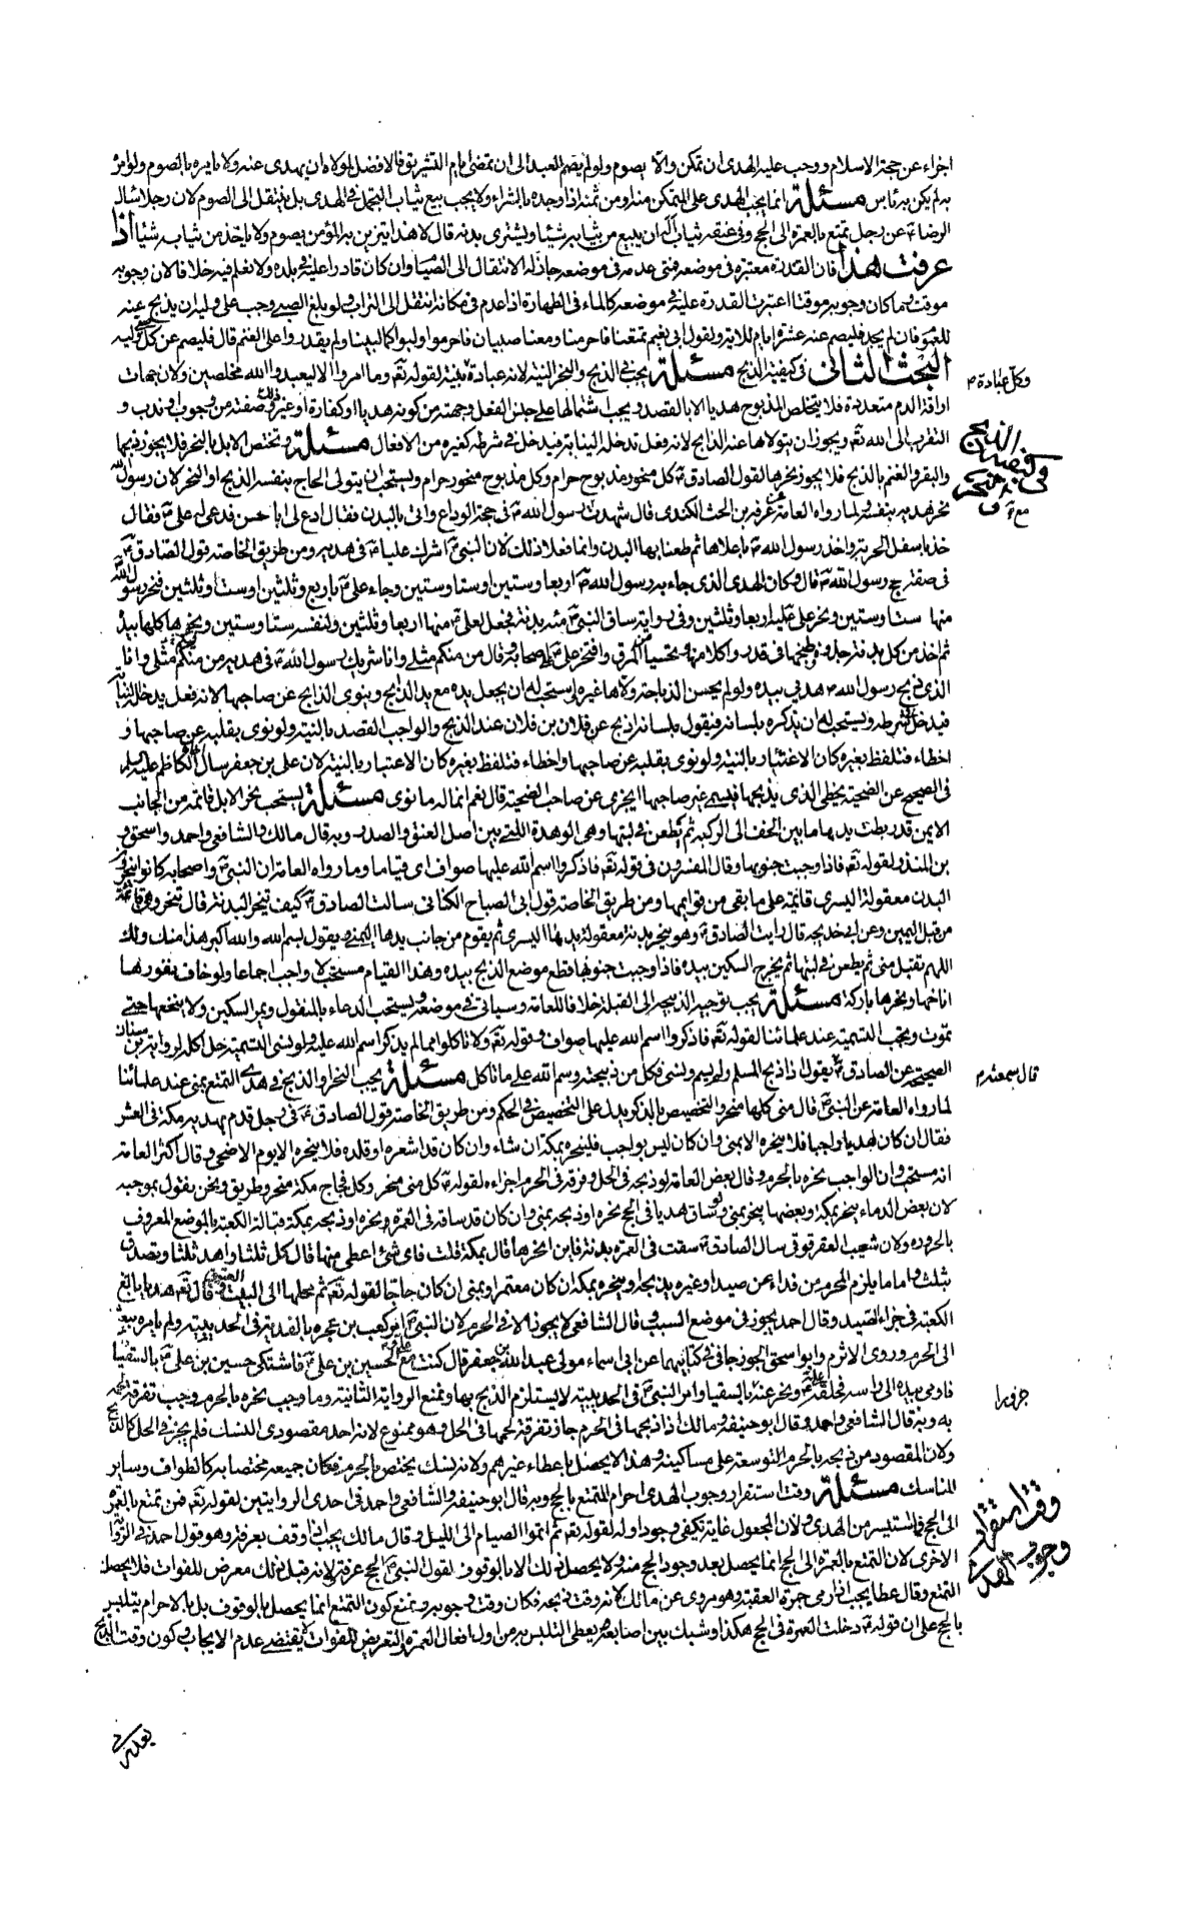 اجزاء عن حجة الاسلام ووجب عليه الهدى ان تمكن والا يصوم ولو لم يصم العبد الى ان تمضى ايام التشريق فالافضل لمولاه ان يهدى عنه ولا يامره بالصوم ولو امره
به لم يكن به باس مسئلة انما يجب الهدى على المتمكن منه او من ثمنه اذا وجده بالشراء ولا يجب بيع ثياب التجمل فى الهدى بل ينتقل الى الصوم لان رجلا سال
الرضا عن رجل تمتع بالعمرة الى الحج وفى عيبته ثياب له ان يبيع من ثيابه شيئا ويشترى بدنه قال لا هذا يتزين به المؤمن يصوم ولا ياخذ من ثيابه شيئا اذا
عرفت هذا فان القدرة معتبرة فى موضعه فمتى عدمه فى موضعه جاز له الانتقال الى الصيام وان كان قادرا عليه فى بلده ولا نعلم فيه خلافا لان وجوبه
موقت وما كان وجوبه موقتا اعتبرت القدرة عليه فى موضعه كالماء فى الطهارة اذا عدم فى مكانه انتقل الى التراب ولو بلغ الصبى وجب على وليه ان يذبح عنه
فان لم يجد فليصم عنه عشرة ايام للاية ولقول ابى نعيم تمتعنا فاحرمنا ومعنا صبيان فاحرموا ولبوا كما لبينا ولم يقدروا على الغنم قال فليصم عن كل صبى وليه
البحث الثانى فى كيفية الذبح مسئلة يجب فى الذبح والنحر النية لانه عبادة لقوله تع وما امروا الا ليعبدوا الله مخلصين ولان جهات
وكل عبادة
اراقة الدم متعددة فلا يتخلص المذبوح هديا الا بالقصد ويجب اشتمالها على جنس الفعل وجهته من كونه هديا او كفارة او غير ذلك وصفته من وجوب او ندب و
التقرب الى الله تع ويجوز ان يتولاها عنه الذابح لانه فعل تدخله النيابة فيدخل فى شرطه كغيره من الافعال مسئلة وتختص الابل بالنحر فلا يجوز ذبحها
والبقر والغنم بالذبح فلا يجوز نحرها لقول الصادق كل منحور مذبوح حرام وكل مذبوح منحور حرام ويستحب ان يتولى الحاج بنفسه الذبح او النحر لان رسول الله
نحر هديه بنفسه لما رواه العامة عن غرفة بن الحرث الكندى قال شهدت رسول الله فى حجة الوداع واتى بالبدن فقال ادع لى ابا حسن فدعى له على فقال
خذ باسفل الحربة واخذ رسول الله باعلاها ثم طعنا بها البدن وانما فعلا ذلك لان النبى اشرك عليا فى هديه ومن طريق الخاصة قول الصادق
فى صفة حج رسول الله قال وكان الهدى الذى جاء به رسول الله اربعا وستين او ستا وستين وجاء على باربع وثلثين او ست وثلثين فنحر رسول الله
منها ستا وستين ونحر على اربعا وثلثين وفى رواية ساق النبى مئة بدنة فجعل لعلى منها اربعا وثلثين ولنفسه ستا وستين ونحرها كلها بيده
ثم اخذ من كل بدنة جذوة وطبخها فى قدر واكلا منها وتحسيا من المرق وافتخر على على الصحابة وقال من منكم مثلى وانا شريك رسول الله فى هديه من منكم مثلى وانا
الذى ذبح رسول الله هديى بيده ولو لم يحسن الذباحة ولاها غيره واستحب له ان يجعل يده مع يد الذابح وينوى الذابح عن صاحبها لانه فعل يدخله النيابة
فيدخل فى شرطه ويستحب له ان يذكره بلسانه فيقول بلسانه اذبح عن فلان بن فلان عند الذبح والواجب القصد بالنية ولو نوى بقلبه عن صاحبها و
اخطاء فتلفظ بغيره كان الاعتبار بالنية ولو نوى بقلبه عن صاحبها واخطاء فتلفظ بغيره كان الاعتبار بالنية لان على بن جعفر سال الكاظم عليه السلم
فى الصحيح عن الضحية يخطى الذى يذبحها فيسمى غير صاحبها ايجزى عن صاحب الضحية قال نعم انما له ما نوى مسئلة يستحب نحر الابل قائمة من الجانب
الايمن قد ربطت يديها ما بين الخف الى الركبة ثم يطعن فى لبتها وهى الوهدة التى بين اصل العنق والصدر وبه قال مالك والشافعى واحمد واسحق و
بن المنذر لقوله تع فاذا وجبت جنوبها وقال المفسرون فى قوله تع فاذكروا اسم الله عليها صواف اى قياما وما رواه العامة ان النبى واصحابه كانوا ينحرون
البدن معقولة اليسرى قائمة على ما بقى من قوايمها ومن طريق الخاصة قول ابى الصباح الكنانى سالت الصادق كيف تنحر البدنة قال تنحر وهى قائمة
من قبل اليمين وعن ابى خديجة قال رايت الصادق وهو ينحر بدنة معقولة يدها اليسرى ثم يقوم من جانب يدها اليمنى ويقول بسم الله والله اكبر هذا منك ولك
اللهم تقبل منى ثم يطعن فى لبتها ثم يخرج السكين بيده فاذا وجبت جنوبها قطع موضع الذبح بيده وهذا القيام مستحب لا واجب اجماعا ولو خاف نفورها
اناخها ونحرها باركة مسئلة يجب توجيه الذبيحة الى القبلة خلافا للعامة وسياتى فى موضعه ويستحب الدعاء بالمنقول ويمر السكين ولا ينخعها حتى
تموت وتجب التسمية عند علمائنا لقوله تع فاذكروا اسم الله عليها صواف وقوله تع ولا تاكلوا مما لم يذكر اسم الله عليه ولو نسى التسمية حل اكله لرواية بن سنان
الصحيحة عن الصادق يقول اذا ذبح المسلم ولم يسم ونسى فكل من ذبيحته وسم الله على ما تاكل مسئلة يجب النحر او الذبح فى هدى التمتع بمنى عند علمائنا
قال سمعته
لما رواه العامة عن النبى قال منى كلها منحر والتخصيص بالذكر يدل على التخصيص فى الحكم ومن طريق الخاصة قول الصادق فى رجل قدم بهديه مكة فى العشر
فقال ان كان هديا واجبا فلا ينحره الا بمنى وان كان ليس بواجب فلينحره بمكة ان شاء وان كان قد اشعره او قلده فلا ينحره الا يوم الاضحى وقال اكثر العامة
انه مستحب وان الواجب نحره بالحرم وقال بعض العامة لو ذبحه فى الحل وفرقه فى الحرم اجزاءه لقوله كل منى منحر وكل فجاج مكة منحر وطريق ونحن نقول بموجبه
لان بعض الدماء ينحر بمكة وبعضها ينحر بمنى ولو ساق هديا فى الحج نحره او ذبحه بمنى وان كان قد ساقه فى العمرة نحره او ذبحه بمكة قبالة الكعبة بالموضع المعروف
بالحزورة ولان شعيب العقرقوفى سال الصادق سقت فى العمرة بدنة فاين انحرها قال بمكة قلت فاى شئ اعطى منها قال كل ثلثا واهد ثلثا وتصدق
بثلث واما ما يلزم المحرم من فداء عن صيد او غيره يذبحه او ينحره بمكة ان كان معتمرا وبمنى ان كان حاجا لقوله تع ثم محلها الى البيت العتيق وقال تع هديا بالغ
الكعبة فى جزاء الصيد وقال احمد يجوز فى موضع السبب وقال الشافعى لا يجوز الا فى الحرم لان النبى امر كعب بن عجرة بالفدية فى الحديبية ولم يامره ببعثه
الى الحرم وروى الاثرم وابو اسحق الجوزجانى فى كتابيهما عن ابى اسماء مولى عبد الله بن جعفر قال كنت مع على والحسين بن على فاشتكى حسين بن على بالسقيا
فاومى بيده الى راسه فحلقه على ونحر عنه بالسقيا وامر النبى فى الحديبية لا يستلزم الذبح بها ونمنع الرواية الثانية وما وجب نحره بالحرم وجب تفرقة لحمه
جزورا
به وبه قال الشافعى واحمد وقال ابو حنيفة ومالك اذا ذبحها فى الحرم جاز تفرقة لحمها فى الحل وهو ممنوع لانه احد مقصودى النسك فلم يجز فى الحل كالذبح
ولان المقصود من ذبحه بالحرم التوسعة على مساكينه وهذا لا يحصل باعطاء غيرهم ولانه نسك يختص بالحرم فكان جميعه مختصا به كالطواف وساير
المناسك مسئلة وقت استقرار وجوب الهدى احرام المتمتع بالحج وبه قال ابو حنيفة والشافعى واحمد فى احدى الروايتين لقوله تع فمن تمتع بالعمرة
وقت استقرار
وجوب الهدى
الى الحج فما استيسر من الهدى ولان المجعول غاية تكفى وجود اوله لقوله تع ثم اتموا الصيام الى الليل وقال مالك يجب اذا وقف بعرفة وهو قول احمد فى الرواية
الاخرى لان التمتع بالعمرة الى الحج انما يحصل بعد وجود الحج منه ولا يحصل ذلك الا بالوقوف لقول النبى الحج عرفة ولانه قبل ذلك معرض للفوات فلا يحصل
التمتع وقال عطا يجب اذا رمى جمرة العقبة وهو مروى عن مالك لانه وقت ذبحه فكان وقت وجوبه ونمنع كون التمتع انما يحصل بالوقوف بل بالاحرام يتلبس
بالحج على ان قوله دخلت العمرة فى الحج هكذا وشبك بين اصابعه يعطى التلبس به من اول افعال العمرة والتعريض للفوات لا يقتضى عدم الايجاب وكون وقت الذبح